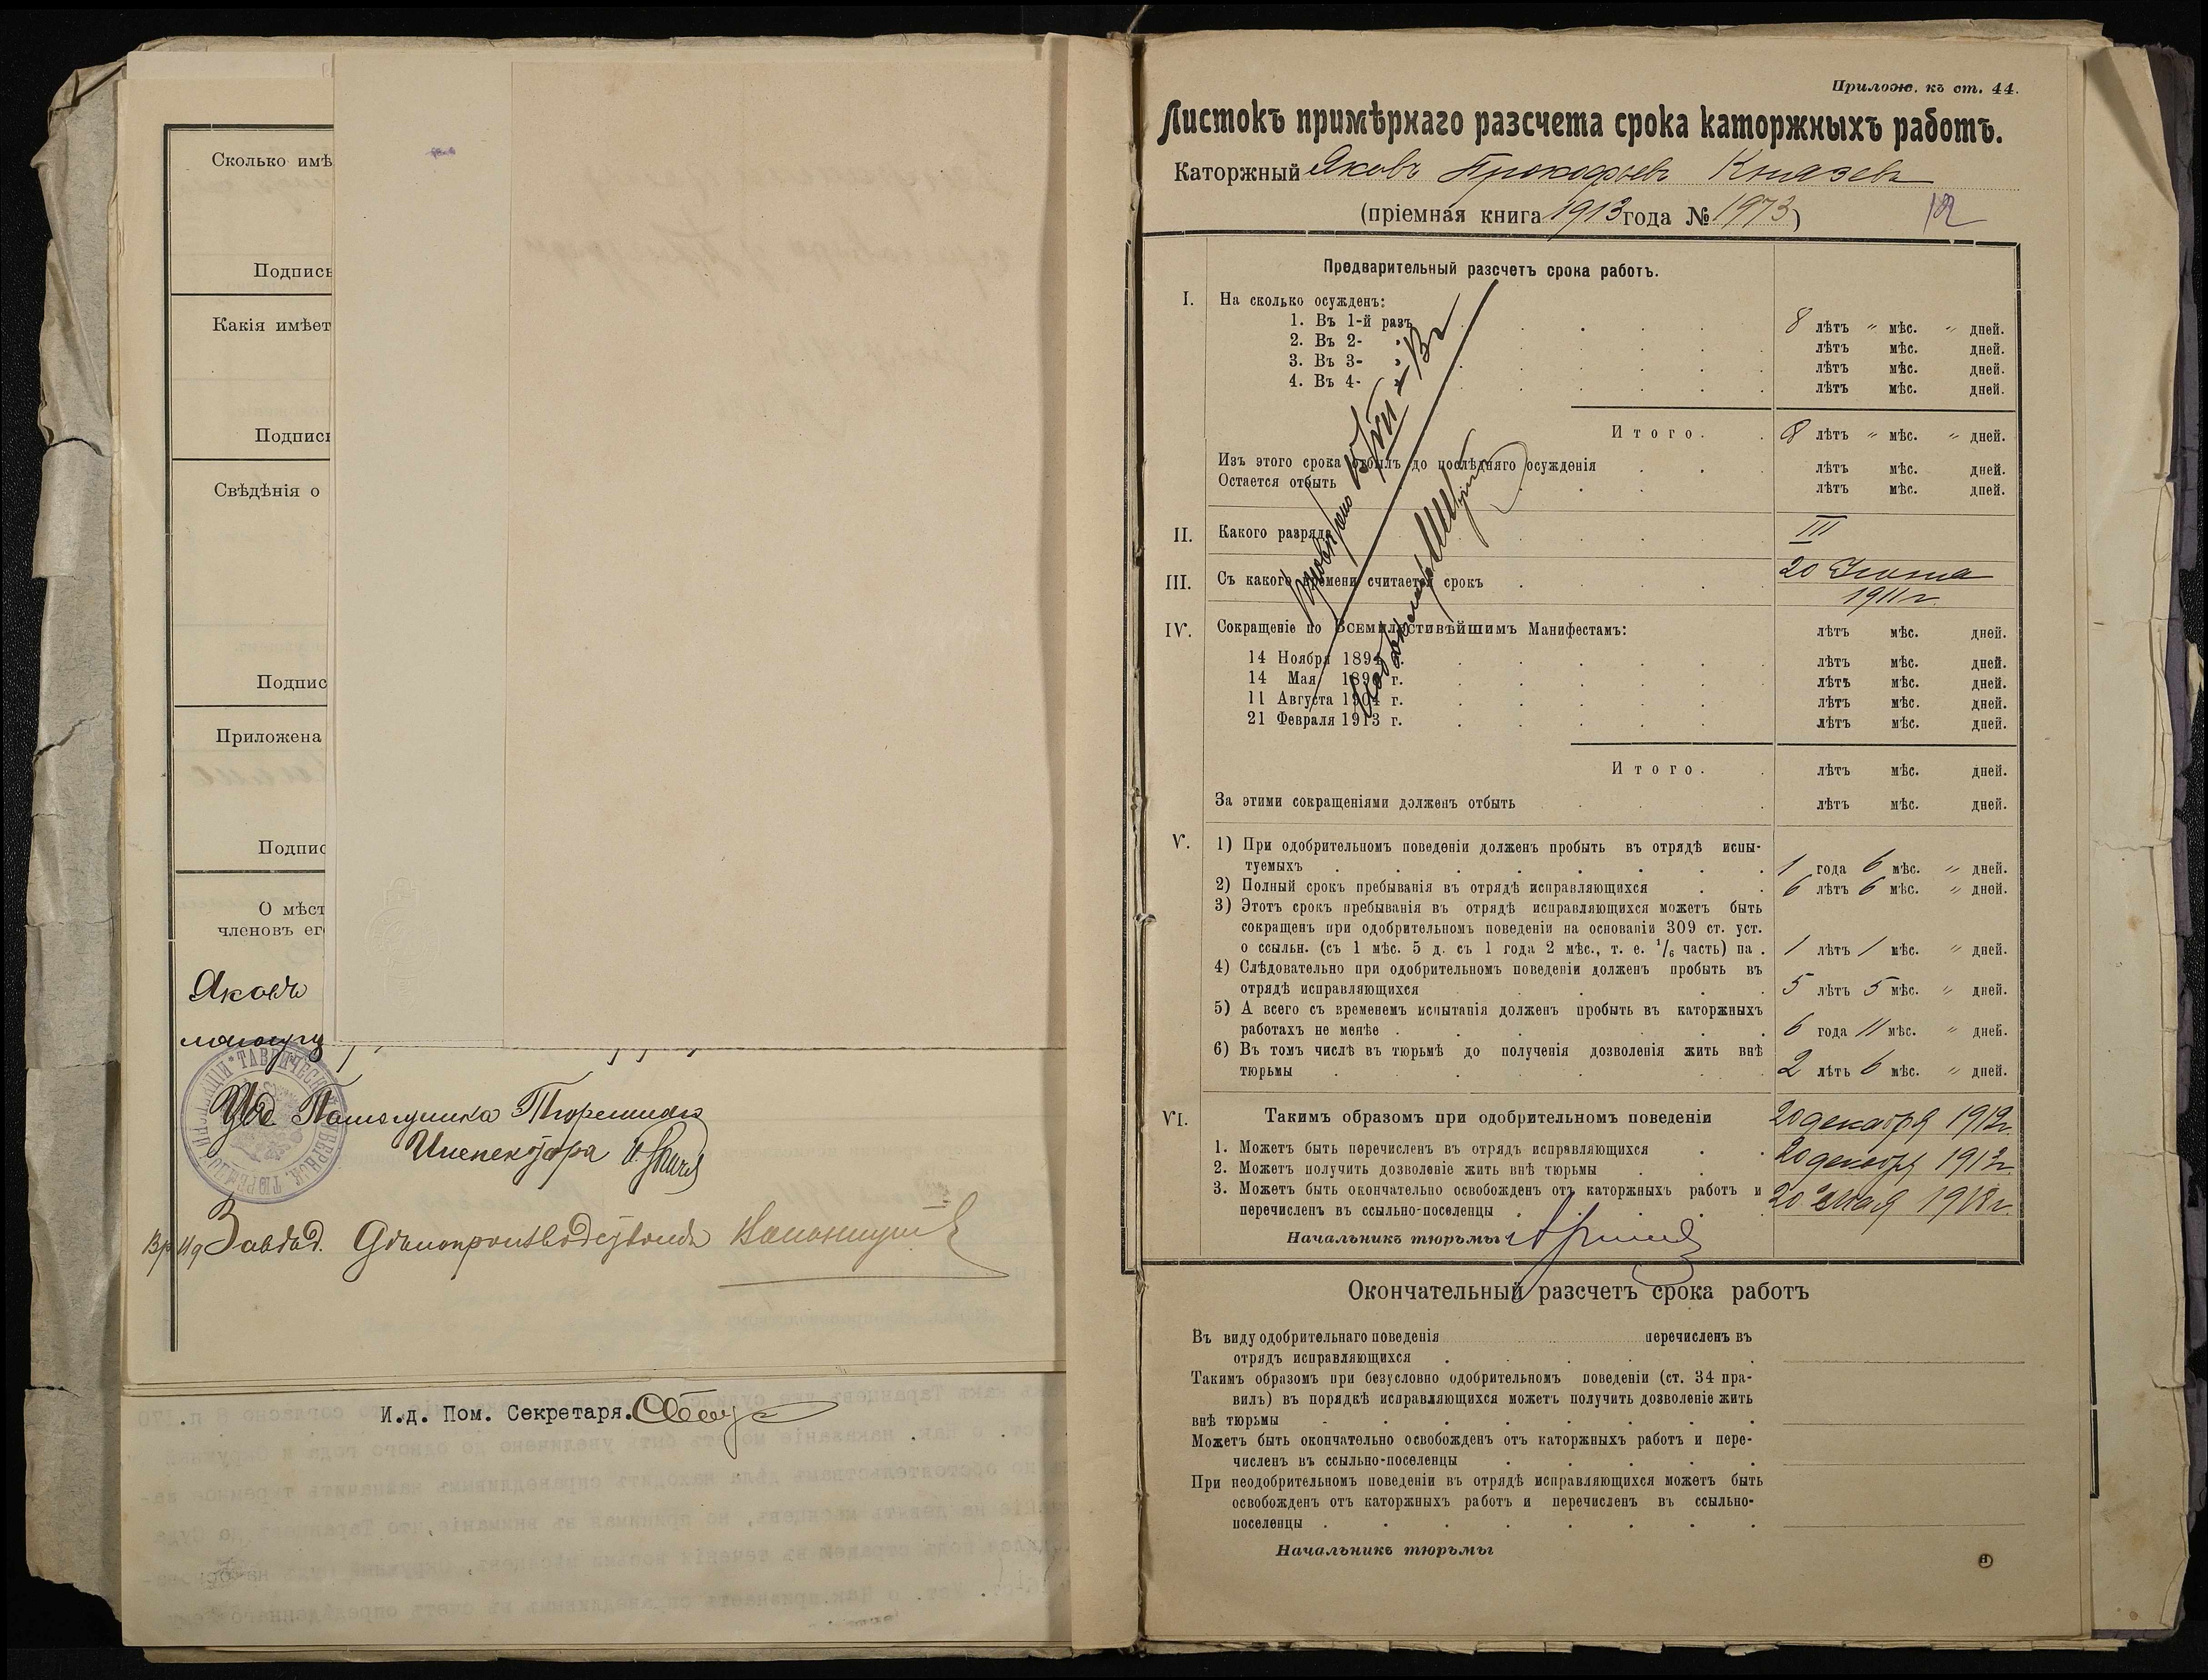 Сколько имѣ
Подпись
Какія имѣет
Подпис
Свѣдѣнія о
Подпис
Приложена
Подпис
О мѣст
членовъ ег
Яковъ
Помощника Тюремнаго
Инспектора
Завѣд. Дѣлопроизводствомъ
И.д. Пом. Секретаря.
Прилож. къ ст. 44.
Листокъ примѣрнаго разсчета срока каторжныхъ работъ.
Каторжный Яковъ Прокофьевъ Князевъ
(пріемная книга 1913 года № 1973)
12
Предварительный разсчетъ срока работъ.
I. На сколько осужденъ:
1. Въ 1-й разъ 8 лѣтъ " мѣс. " дней.
2. Въ 2- " лѣтъ мѣс. дней.
3. Въ 3- " лѣтъ мѣс. дней.
4. Въ 4- " лѣтъ мѣс. дней.
Итого. 8 лѣтъ " мѣс. " дней.
Изъ этого срока отбылъ до послѣдняго осужденія лѣтъ мѣс. дней.
Остается отбыть лѣтъ мѣс. дней.
II. Какого разряда III
III. Съ какого времени считается срокъ 20 Іюня
1911 г.
IV. Сокращеніе по Всемилостивѣйшимъ Манифестамъ: лѣтъ мѣс. дней.
14 Ноября 1894 г. лѣтъ мѣс. дней.
14 Мая 1896 г. лѣтъ мѣс. дней.
11 Августа 1904 г. лѣтъ мѣс. дней.
21 Февраля 1913 г. лѣтъ мѣс. дней.
Итого. лѣтъ мѣс. дней.
За этими сокращеніями долженъ отбыть лѣтъ мѣс. дней.
V. 1) При одобрительномъ поведеніи долженъ пробыть въ отрядѣ испы-
туемыхъ 1 года 6 мѣс. " дней.
2) Полный срокъ пребыванія въ отрядѣ исправляющихся 6 лѣтъ 6 мѣс. " дней.
3) Этотъ срокъ пребыванія въ отрядѣ исправляющихся можетъ быть
сокращенъ при одобрительномъ поведеніи на основаніи 309 ст. уст.
о ссыльн. (съ 1 мѣс. 5 д. съ 1 года 2 мѣс., т. е. 1/6 часть) на 1 лѣтъ 1 мѣс. " дней.
4) Слѣдовательно при одобрительномъ поведеніи долженъ пробыть въ
отрядѣ исправляющихся 5 лѣтъ 5 мѣс. " дней.
5) А всего съ временемъ испытанія долженъ пробыть въ каторжныхъ
работахъ не менѣе 6 года 11 мѣс. " дней.
6) Въ томъ числѣ въ тюрьмѣ до полученія дозволенія жить внѣ
тюрьмы 2 лѣтъ 6 мѣс. " дней.
VI. Такимъ образомъ при одобрительномъ поведеніи 20 декабря 1912 г.
1. Можетъ быть перечисленъ въ отрядъ исправляющихся
2. Можетъ получить дозволеніе жить внѣ тюрьмы 20 декабря 1913 г.
3. Можетъ быть окончательно освобожденъ отъ каторжныхъ работъ и
перечисленъ въ ссыльно-поселенцы 20 мая 1918 г.
Начальникъ тюрьмы
Окончательный разсчетъ срока работъ
Въ виду одобрительнаго поведенія перечисленъ въ
отрядъ исправляющихся
Такимъ образомъ при безусловно одобрительномъ поведеніи (ст. 34 пра-
вилъ) въ порядкѣ исправляющихся можетъ получить дозволеніе жить
внѣ тюрьмы
Можетъ быть окончательно освобожденъ отъ каторжныхъ работъ и пере-
численъ въ ссыльно-поселенцы
При неодобрительномъ поведеніи въ отрядѣ исправляющихся можетъ быть
освобожденъ отъ каторжныхъ работъ и перечисленъ въ ссыльно-
поселенцы
Начальникъ тюрьмы